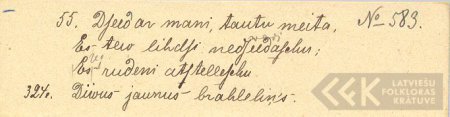 55. Dseedar mani, tautu meita, № 583.
Es tew lihdsi nedseedaschu;
Es rudeni atstelleschu
324. Diwus jaunus brahlelin's.
LATVIEŠU
FOLKLORAS
KRĀTUVE